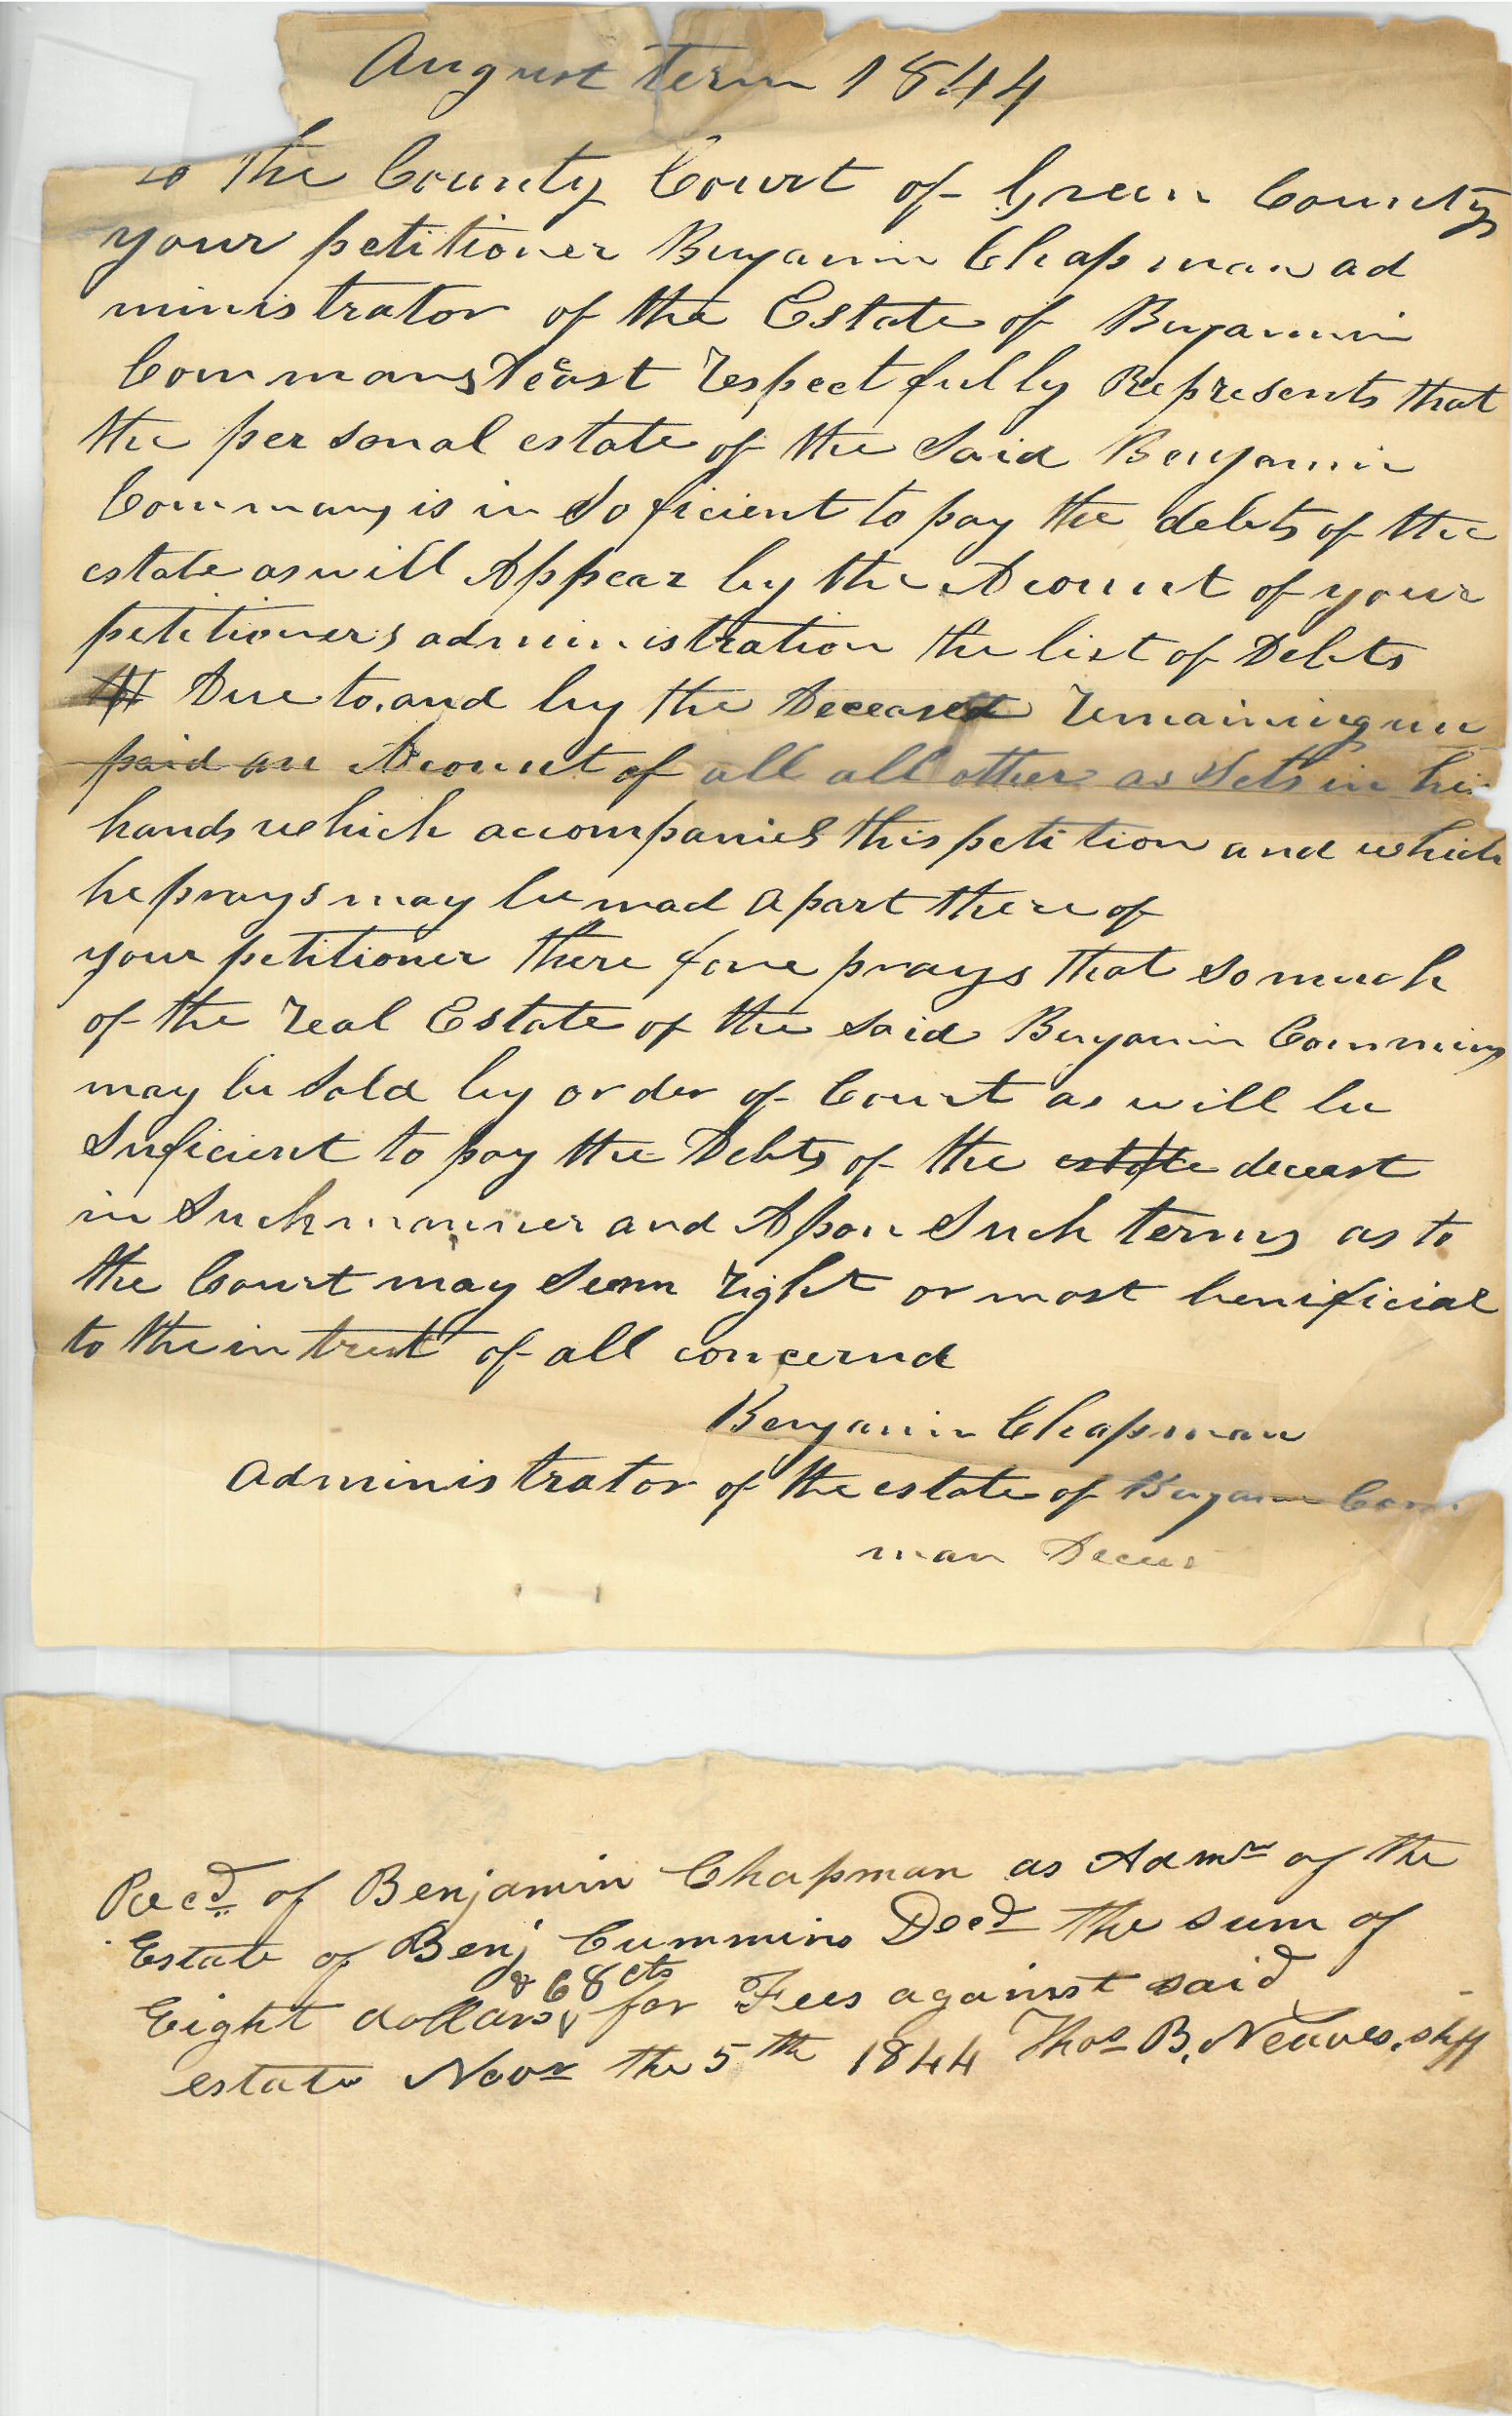 August term 1844
to the County Court of Green County
your petitioner Benjamin Chapman ad
ministrator of the Estate of Benjamin
Commans Deast respectfully Represents that
the personal estate of the Said Benjamin
Commans is in Soficient to pay the debts of the
estate as will Appear by the Acount of your
petitioners administration the list of Debts
Due to and by the Deceased remaining un
paid an Acount of all all other as Sets in his
hands which accompanies this petition and which
he prays may be mad a part there of
your petitioner there fore prays that so much
of the real Estate of the said Benjamin Commins
may be sold by order of Court as will be
Suficient to pay the Debts of the estate deceast
in Such manner and Apon Such terms as to
the Court may Seem right or most benificial
to the intrest of all concernd
Benjamin Chapman
administrator of the estate of Benjamin Com
man Deces
Recd of Benjamin Chapman as Admr of the
Estate of Benj Cummins Decd the sum of
Eight dollars & 68 cts for Fees against said
estate Novr the 5th 1844 Thos B. Neaves. shff